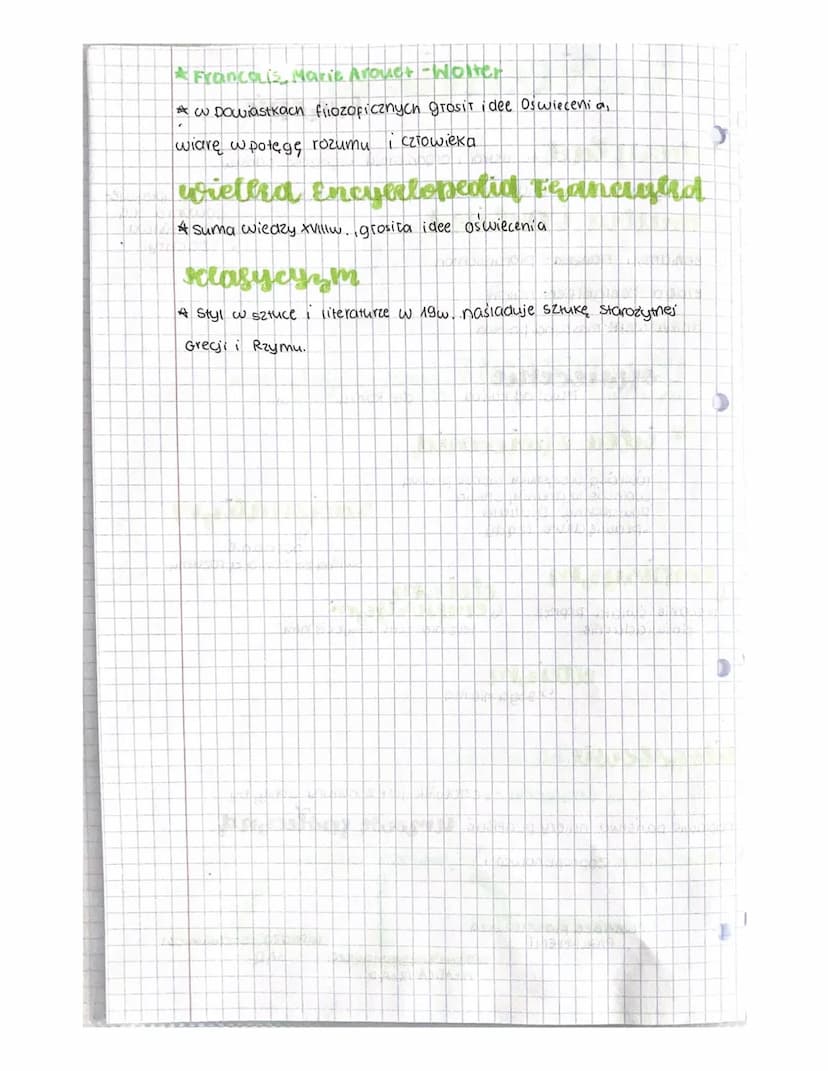 * Francais Marie Arouet - Wolter
* w powiastkach filozoficznych głosił idee Oświecenia,
wiarę w potęgę rozumu i człowieka
Wielka Encyklopedia Francuska
* suma wiedzy XVIIIw., głosiła idee oświecenia
klasycyzm
* Styl w sztuce i literaturze w 19w. naśladuje sztukę starożytnej
Grecji i Rzymu.